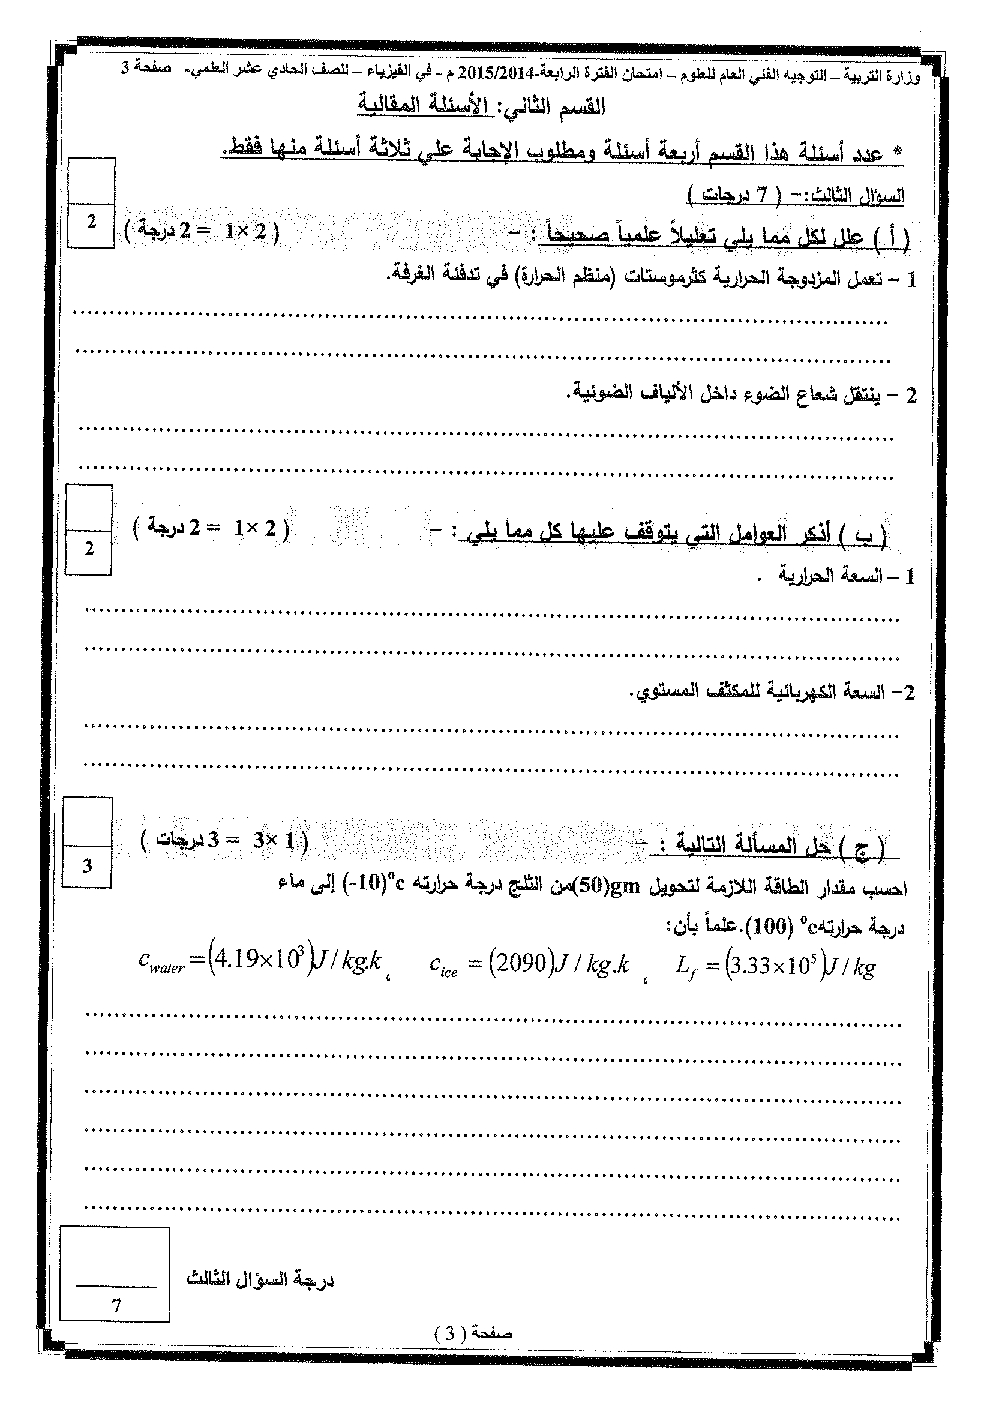 وزارة التربية – التوجيه الفني العام للعلوم – امتحان الفترة الرابعة-2015/2014 م - في الفيزياء – للصف الحادي عشر العلمي- صفحة 3
القسم الثاني: الأسئلة المقالية
* عدد أسئلة هذا القسم أربعة أسئلة ومطلوب الإجابة علي ثلاثة أسئلة منها فقط.
السؤال الثالث:- ( 7 درجات )
( أ ) علل لكل مما يلي تعليلاً علمياً صحيحاً : – ( 2 ×1 = 2 درجة )
2
1 – تعمل المزدوجة الحرارية كثرموستات (منظم الحرارة) في تدفئة الغرفة.
2 – ينتقل شعاع الضوء داخل الألياف الضوئية.
( ب ) أذكر العوامل التي يتوقف عليها كل مما يلي : – ( 2 ×1 = 2 درجة )
2
1 – السعة الحرارية .
2– السعة الكهربائية للمكثف المستوي.
( ج ) حل المسألة التالية : – ( 1 ×3 = 3 درجات )
3
احسب مقدار الطاقة اللازمة لتحويل gm(50)من الثلج درجة حرارته c°(-10) إلى ماء
درجة حرارتهc° (100).علماً بأن:
L_f = (3.33×10^5)J / kg ، c_ice = (2090)J / kg.k ، c_water = (4.19×10^3)J / kg.k
درجة السؤال الثالث
7
صفحة ( 3 )